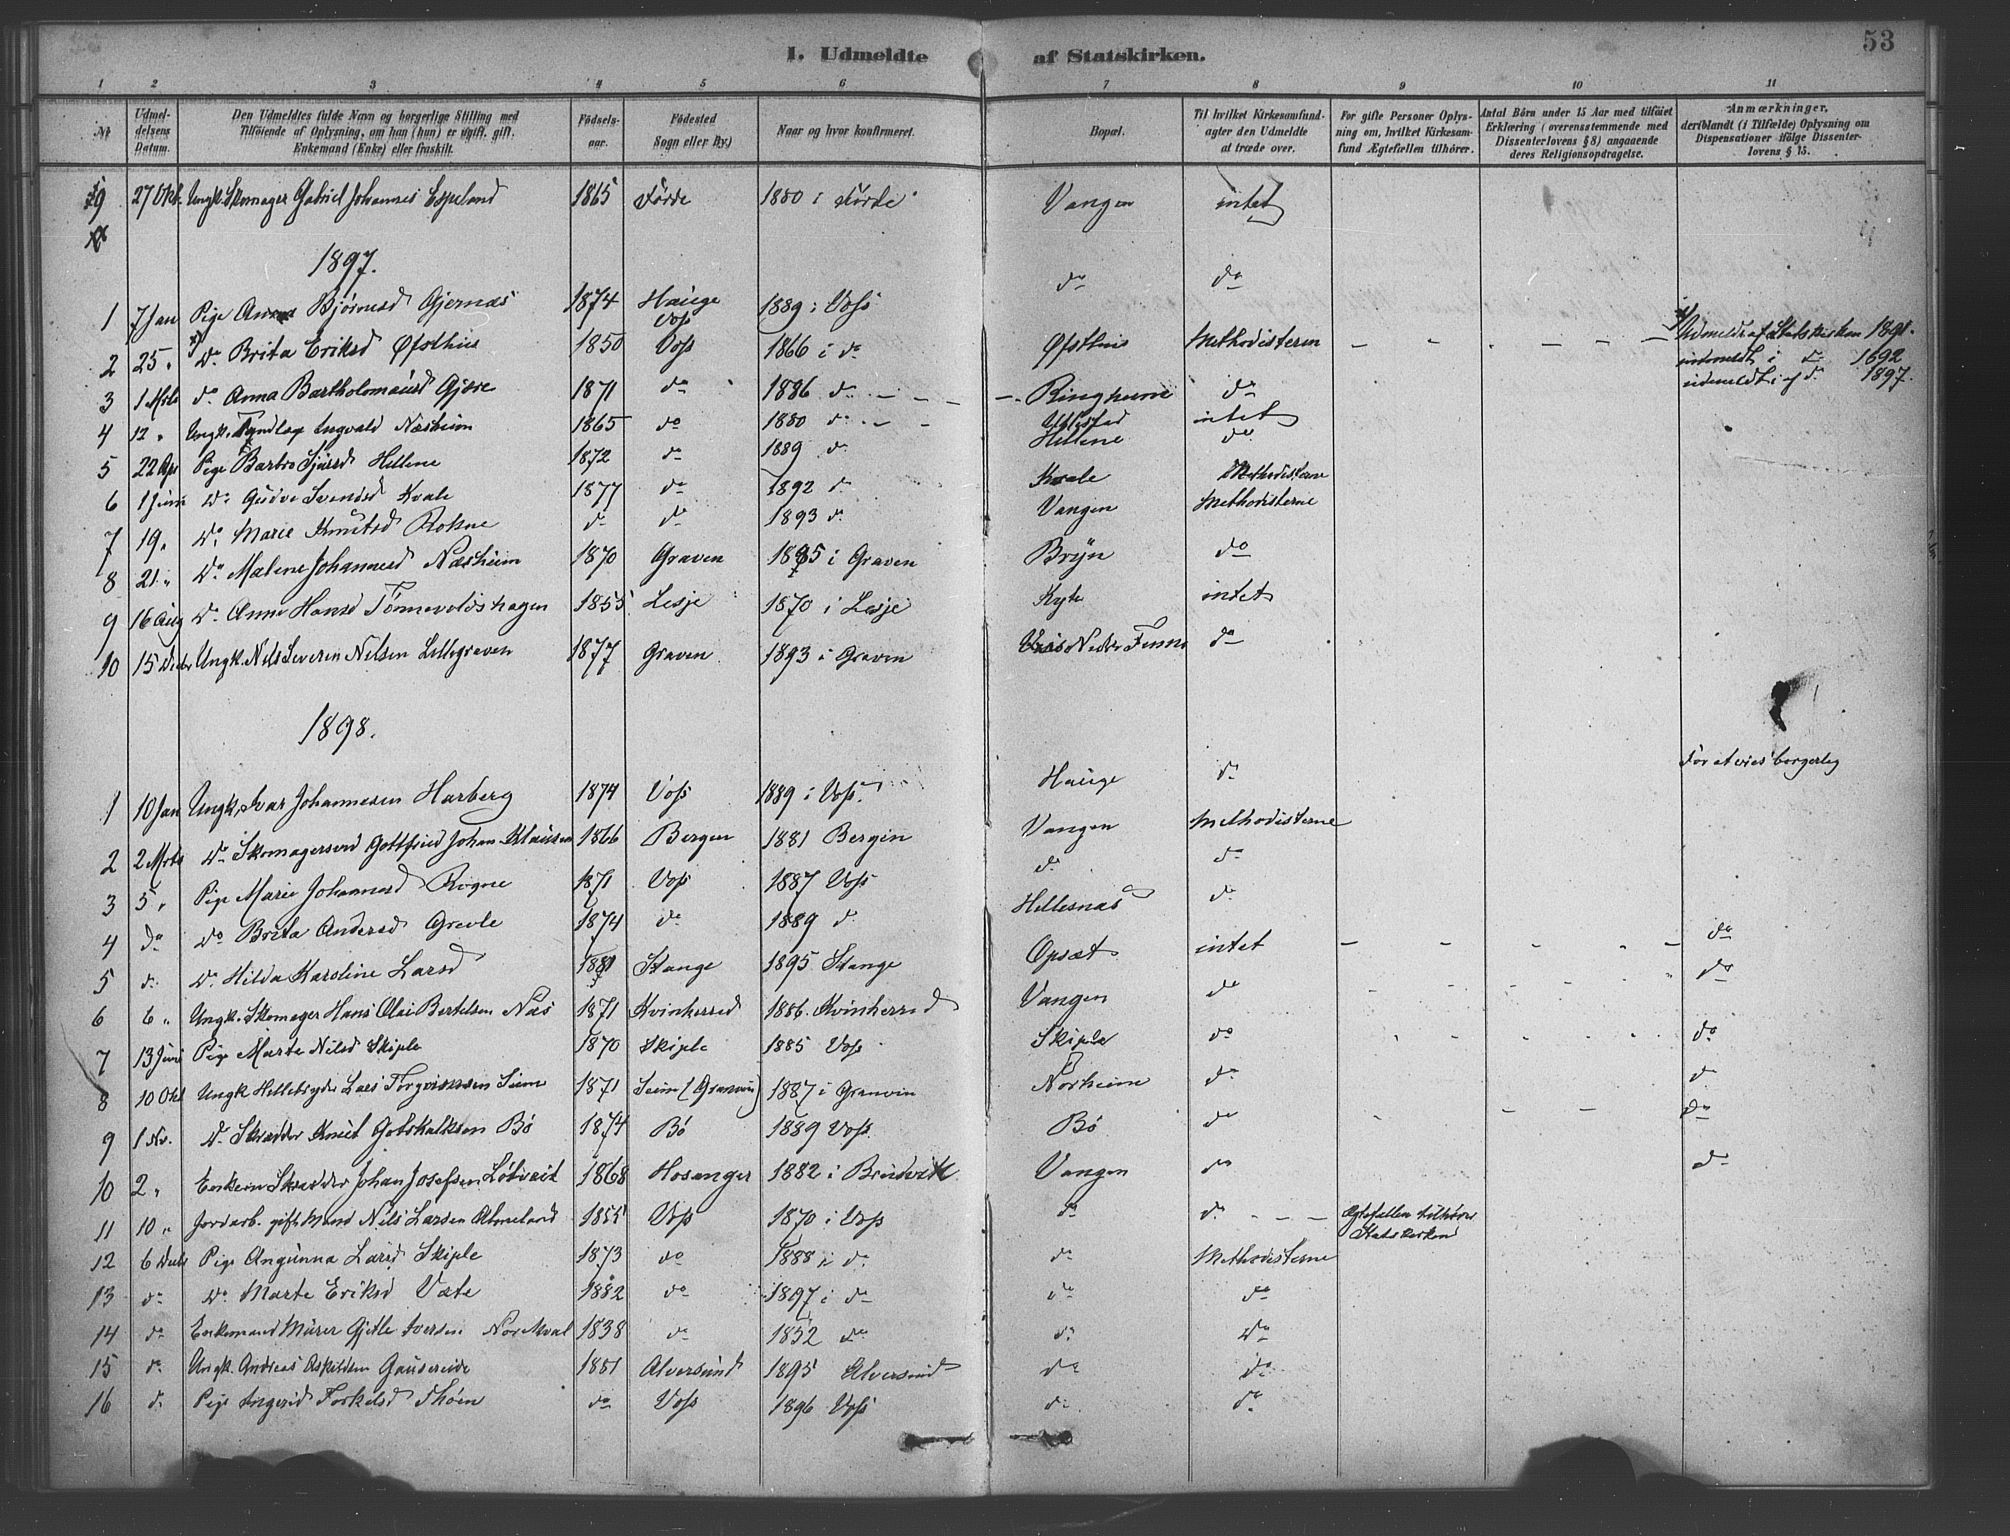 I. Udmeldte af Statskirken. 53
1 2 3 4 5 6 7 8 9 10 11
Nr
Udmel-
delsens
Datum.
Den Udmeldtes fulde Navn og borgerlige Stilling med
Tilföiende af Oplysning, om han (hun) er ugift, gift,
Enkemand (Enke) eller fraskilt.
Födsels-
aar.
Födested
Sogn eller By.)
Naar og hvor konfirmeret.
Bopæl.
Til hvilket Kirkesamfund-
agter den Udmeldte
at træde over.
For gifte Personer Oplys-
ning om, hvilket Kirkesam-
fund Ægtefællen tilhörer.
Antal Börn under 15 Aar med tilföiet
Erklæring (overensstemmende med
Dissenterlovens § 8) angaaende
deres Religionsopdragelse.
Anmærkninger,
deriblandt (i Tilfælde) Oplysning om
Dispensationer ifölge Dissenter-
lovens § 15.
19 27 Ungk. Skomager Gabriel Johannes Espeland 1865 Førde 1880 i Førde Vangen intet
1897.
1 7 Jan Pige Anna Bjørnsd Gjernes 1874 Hauge Voss 1889 i Voss do do
2 25 " do Brita Eriksd Øfsthus 1850 Voss 1866 i do Øfsthus Methodisterne - - - - - - Udmeldt af Statskirken 1891.
indmeldt i do 1892
udmeldt af do 1897.
3 1 Mrts do Anna Bartholomæusd Gjere 1871 do 1886 do - - - - Ringheim do
4 12 " Ungk. Ingvald Næsheim 1865 do 1880 do - - intet
5 22 Apr Pige Barbro Sjursd Hellene 1872 do 1889 do Hellene do
6 1 Juni do Gudve Svendsd Kvale 1877 do 1892 do Kvale Methodisterne
7 19 " do Marie Knutsd Rokne do do 1893 do Vangen Methodisterne
8 21 " do Malene Johannesd Næsheim 1870 Graven 1885 i Graven Bryn do
9 16 Aug do Anne Hansd Tønnevoldshagen 1855 Lesje 1870 i Lesje Kyte intet
10 15 Decbr Ungk. Nils Severin Nilsen Lillegraven 1877 Graven 1893 i Graven Nedre Finne do
1898.
1 10 Jan Ungk. Ivar Johannesen Harberg 1874 Voss 1889 i Voss. Hauge do For at vies borgerlig
2 2 Mrts do Skomagersvend Gottfried Johan Klausen 1866 Bergen 1881 Bergen Vangen Methodisterne
3 5 " Pige Marie Johannesd Rogne 1871 Voss 1887 Voss do do
4 do do Brita Andersd Grevle 1874 do 1889 do Hellesnæs do
5 do do Hilda Karoline Larsd 1881 Stange 1895 Stange Opsæt intet - - - - - do
6 6 " Ungk. Skomager Hans Olai Bertelsen Næs 1871 Kvinherred 1886 Kvinherred Vangen do do
7 13 Juni Pige Marte Nilsd Skiple 1870 Skiple 1885 Voss Skiple do do
8 10 Okt Ungk Lars Torgeirsen Seim 1871 Seim (Granvin) 1887 i Granvin Norheim do do
9 1 Nv. do Skrædder Knut Gotskalksen Bø 1874 Bø 1889 Voss. Bø do do
10 2 " Enkem Skrædder Johan Josefsen 1868 Hosanger 1882 i Brudvik Vangen do do
11 10 " Jordarb. gift Mand Nils Larsen 1855 Voss 1870 i Voss do do - - - Ægtefællen tilhører
Statskirken
12 6 Decbr Pige Angunna Larsd Skiple 1873 do 1888 i do do Methodisterne
13 do do Marte Eriksd Væte 1882 do 1897 i do do do
14 do Enkemand Murer Gjetle Iversen 1838 do 1852 do do do
15 do Ungk. Andreas Askildsen 1881 Alversund 1895 Alversund do do
16 do Pige Ingerid Torkelsd Thøen do Voss 1896 Voss do do